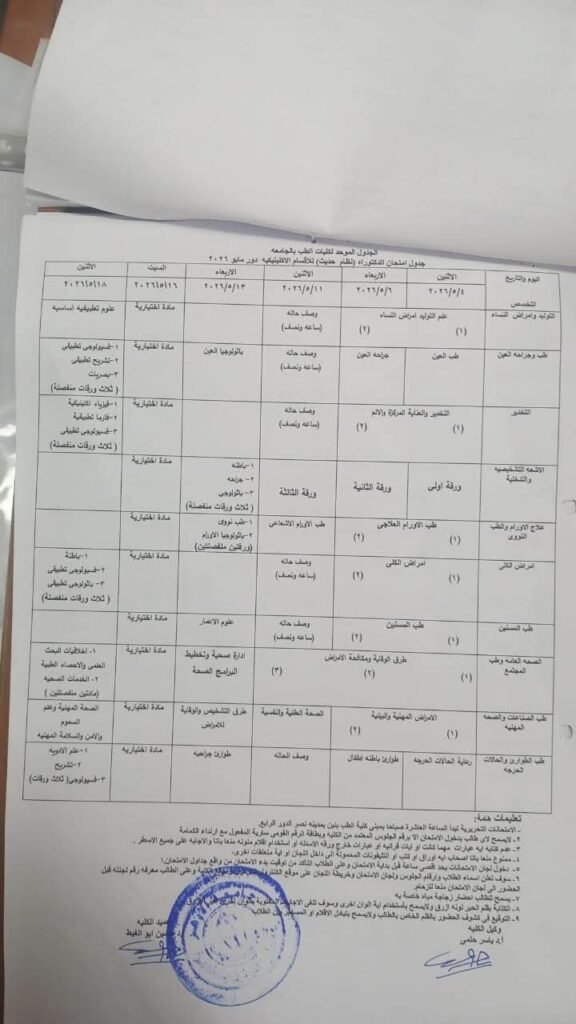 الجدول الموحد لكليات الطب بالجامعه
جدول امتحان الدكتوراه (نظام حديث) للأقسام الاكلينيكيه دور مايو ٢٠٢٦
اليوم والتاريخ
التخصص
الاثنين
الاربعاء
الاثنين
الاربعاء
السبت
الاثنين
٢٠٢٦/٥/٤
٢٠٢٦/٥/٦
٢٠٢٦/٥/١١
٢٠٢٦/٥/١٣
٢٠٢٦/٥/١٦
٢٠٢٦/٥/١٨
التوليد وامراض النساء
علم التوليد امراض النساء
(١) (٢)
وصف حاله
(ساعه ونصف)
مادة اختيارية
علوم تطبيقيه اساسيه
طب وجراحه العين
طب العين
جراحه العين
وصف حاله
(ساعه ونصف)
باثولوجيا العين
مادة اختيارية
١-فسيولوجي تطبيقى
٢-تشريح تطبيقى
٣-بصريات
( ثلاث ورقات منفصلة)
التخدير
التخدير والعناية المركزة والالم
(١) (٢)
وصف حاله
(ساعه ونصف)
مادة اختيارية
١-فيزياء اكلينيكية
٢-فارما تطبيقية
٣-فسيولوجى تطبيقى
( ثلاث ورقات منفصلة)
الاشعه التشخيصيه والتدخلية
ورقة اولى
ورقة الثانية
ورقة الثالثة
١-باطنه
٢- جراحه
٣- باثولوجى
( ثلاث ورقات منفصلة)
مادة اختيارية
علاج الاورام والطب النووى
طب الاورام العلاجي
(١) (٢)
طب الاورام الاشعاعى
١-طب نووى
٢-باثولوجيا الاورام
(ورقتين منفصلتين)
مادة اختيارية
امراض الكلى
امراض الكلى
(١) (٢)
وصف حاله
(ساعه ونصف)
مادة اختيارية
١-باطنة
٢-فسيولوجى تطبيقى
٣- باثولوجى تطبيقى
( ثلاث ورقات منفصلة)
طب المسنين
طب المسنين
(١) (٢)
وصف حاله
(ساعه ونصف)
علوم الاعمار
مادة اختيارية
الصحه العامه وطب المجتمع
طرق الوقاية ومكافحة الامراض
(١) (٢) (٣)
ادارة صحية وتخطيط
البرامج الصحة
مادة اختيارية
١- اخلاقيات البحث
العلمى والاحصاء الطبية
٢- الخدمات الصحيه
(مادتين منفصلتين )
طب الصناعات والصحه المهنيه
الامراض المهنية والبيئية
(١) (٢)
الصحة العقلية والنفسية
طرق التشخيص والوقاية
للامراض
مادة اختيارية
الصحة المهنية وعلم
السموم
والامن والسلامة المهنيه
طب الطوارئ والحالات الحرجه
رعاية الحالات الحرجه
طوارئ باطنه اطفال
وصف الحاله
طوارئ جراحيه
مادة اختياريه
١- علم الادويه
٢-تشريح
٣-فسيولوجى( ثلاث ورقات)
تعليمات هامة:
١- الامتحانات التحريرية تبدأ الساعة العاشرة صباحا بمبنى كلية الطب بنين بمدينه نصر الدور الرابع.
٢- لايسمح لاى طالب بدخول الامتحان الا برقم الجلوس المعتمد من الكليه وبطاقة الرقم القومى سارية المفعول مع ارتداء الكمامة
٣- عدم كتابه ايه عبارات مهما كانت او ايات قرانيه او عبارات خارج ورقه الاسئله او استخدام اقلام ملونه منعا باتا والاجابه على جميع الاسطر .
٤- ممنوع منعا باتا اصحاب ايه اوراق او كتب او التليفونات المحمولة الى داخل اللجان او ايه متعلقات اخرى.
٥- دخول لجان الامتحانات بحد اقصى ساعة قبل بداية الامتحان وعلى الطلاب التأكد من توقيت بدء الامتحان من واقع جداول الامتحان!
٦- سوف تعلن اسماء الطلاب وارقام الجلوس ولجان الامتحان وخريطة اللجان على موقع الكترونى وعلى الطالب معرفه رقم لجنته قبل
الحضور الى لجان الامتحان منعا للزحام.
٧- يسمح للطالب احضار زجاجة مياه خاصة به
٨- الكتابة بقلم الحبر لونه ازرق ولايسمح باستخدام اية الوان اخرى وسوف تلغى
٩- التوقيع فى كشوف الحضور بالقلم الخاص بالطالب ولايسمح بتبادل الاقلام او الطلاب
وكيل الكليه
أ.د ياسر حلمى
عميد الكليه
حسين ابو الغيط